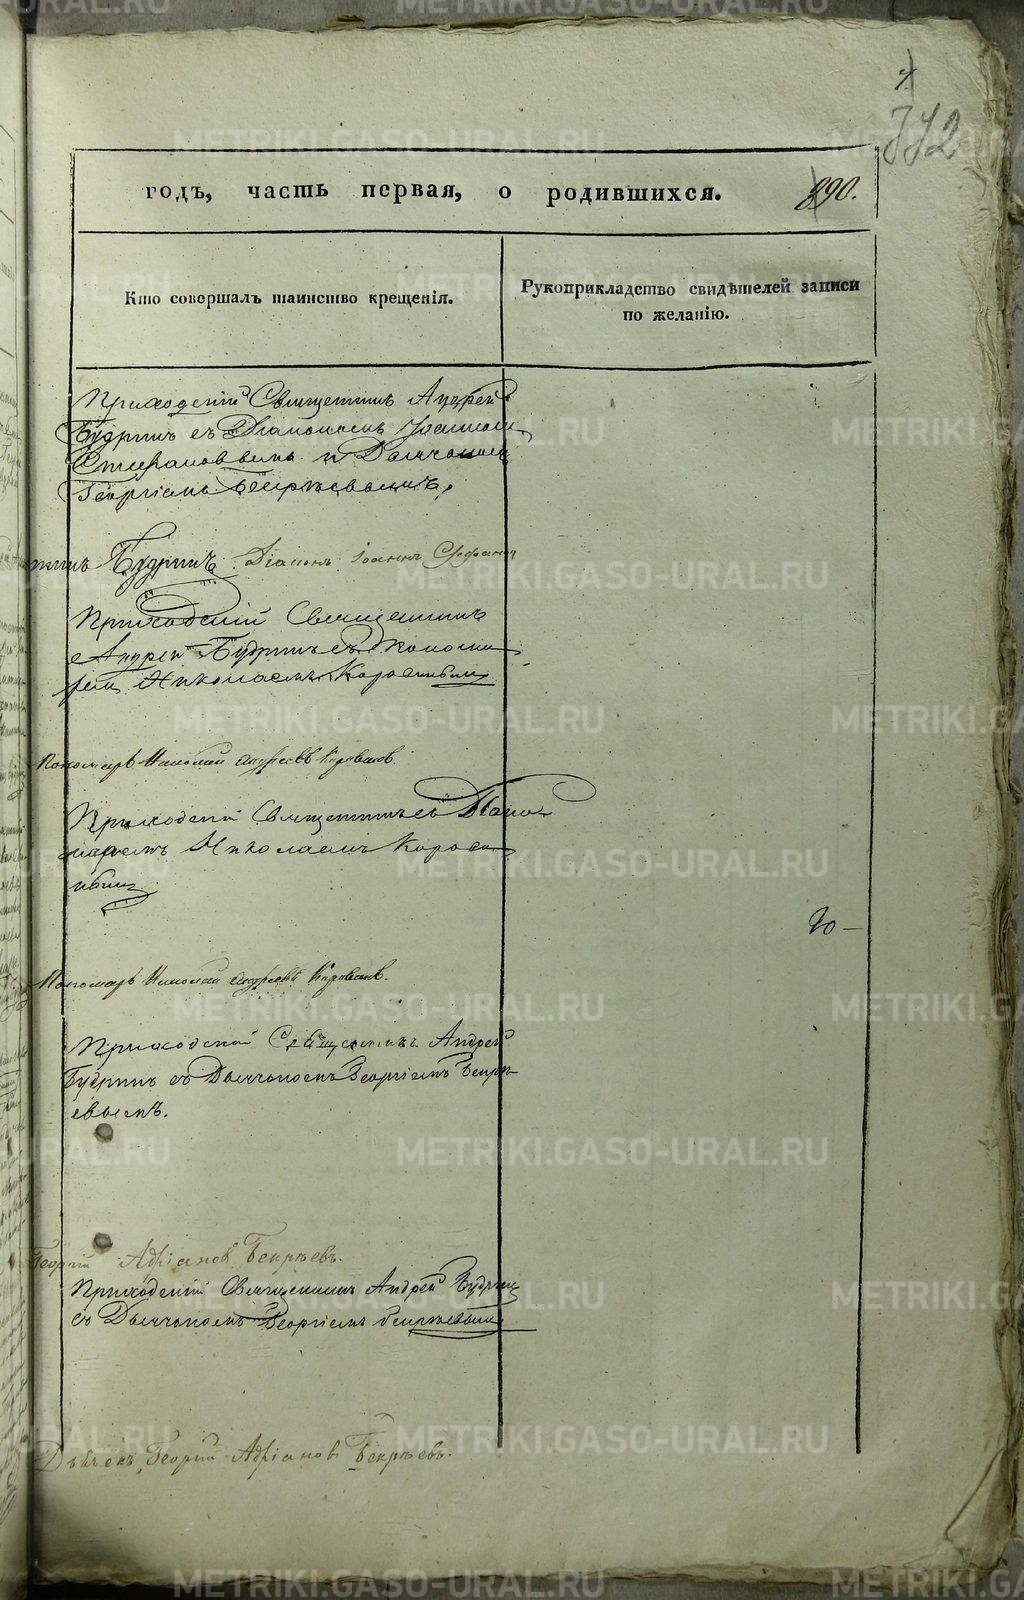 772
годъ, часть первая, о родившихся. 890.
Кто совершалъ таинство крещенія.
Рукоприкладство свидѣтелей записи
по желанію.
Приходскій Священникъ Андрей
Будринъ съ Діакономъ Іоанномъ
Стефановымъ и Дьячкомъ
Георгіемъ Бекрѣевымъ,
Будринъ. Діаконъ Іоаннъ
Приходскій Священникъ
Андрей Будринъ съ Пономаремъ
Николаемъ
Пономарь Николай Андреевъ
Приходскій Священникъ съ Поно-
маремъ Николаемъ
Пономарь Николай Андреевъ
Приходскій Священникъ Андрей
Будринъ съ Дьячкомъ Георгіемъ Бекрѣ-
евымъ.
Георгій Адріановъ Бекрѣевъ.
Приходскій Священникъ Андрей Будринъ
съ Дьячкомъ Георгіемъ Бекрѣевымъ
Дьячекъ Георгій Адріановъ Бекрѣевъ.
METRIKI.GASO-URAL.RU